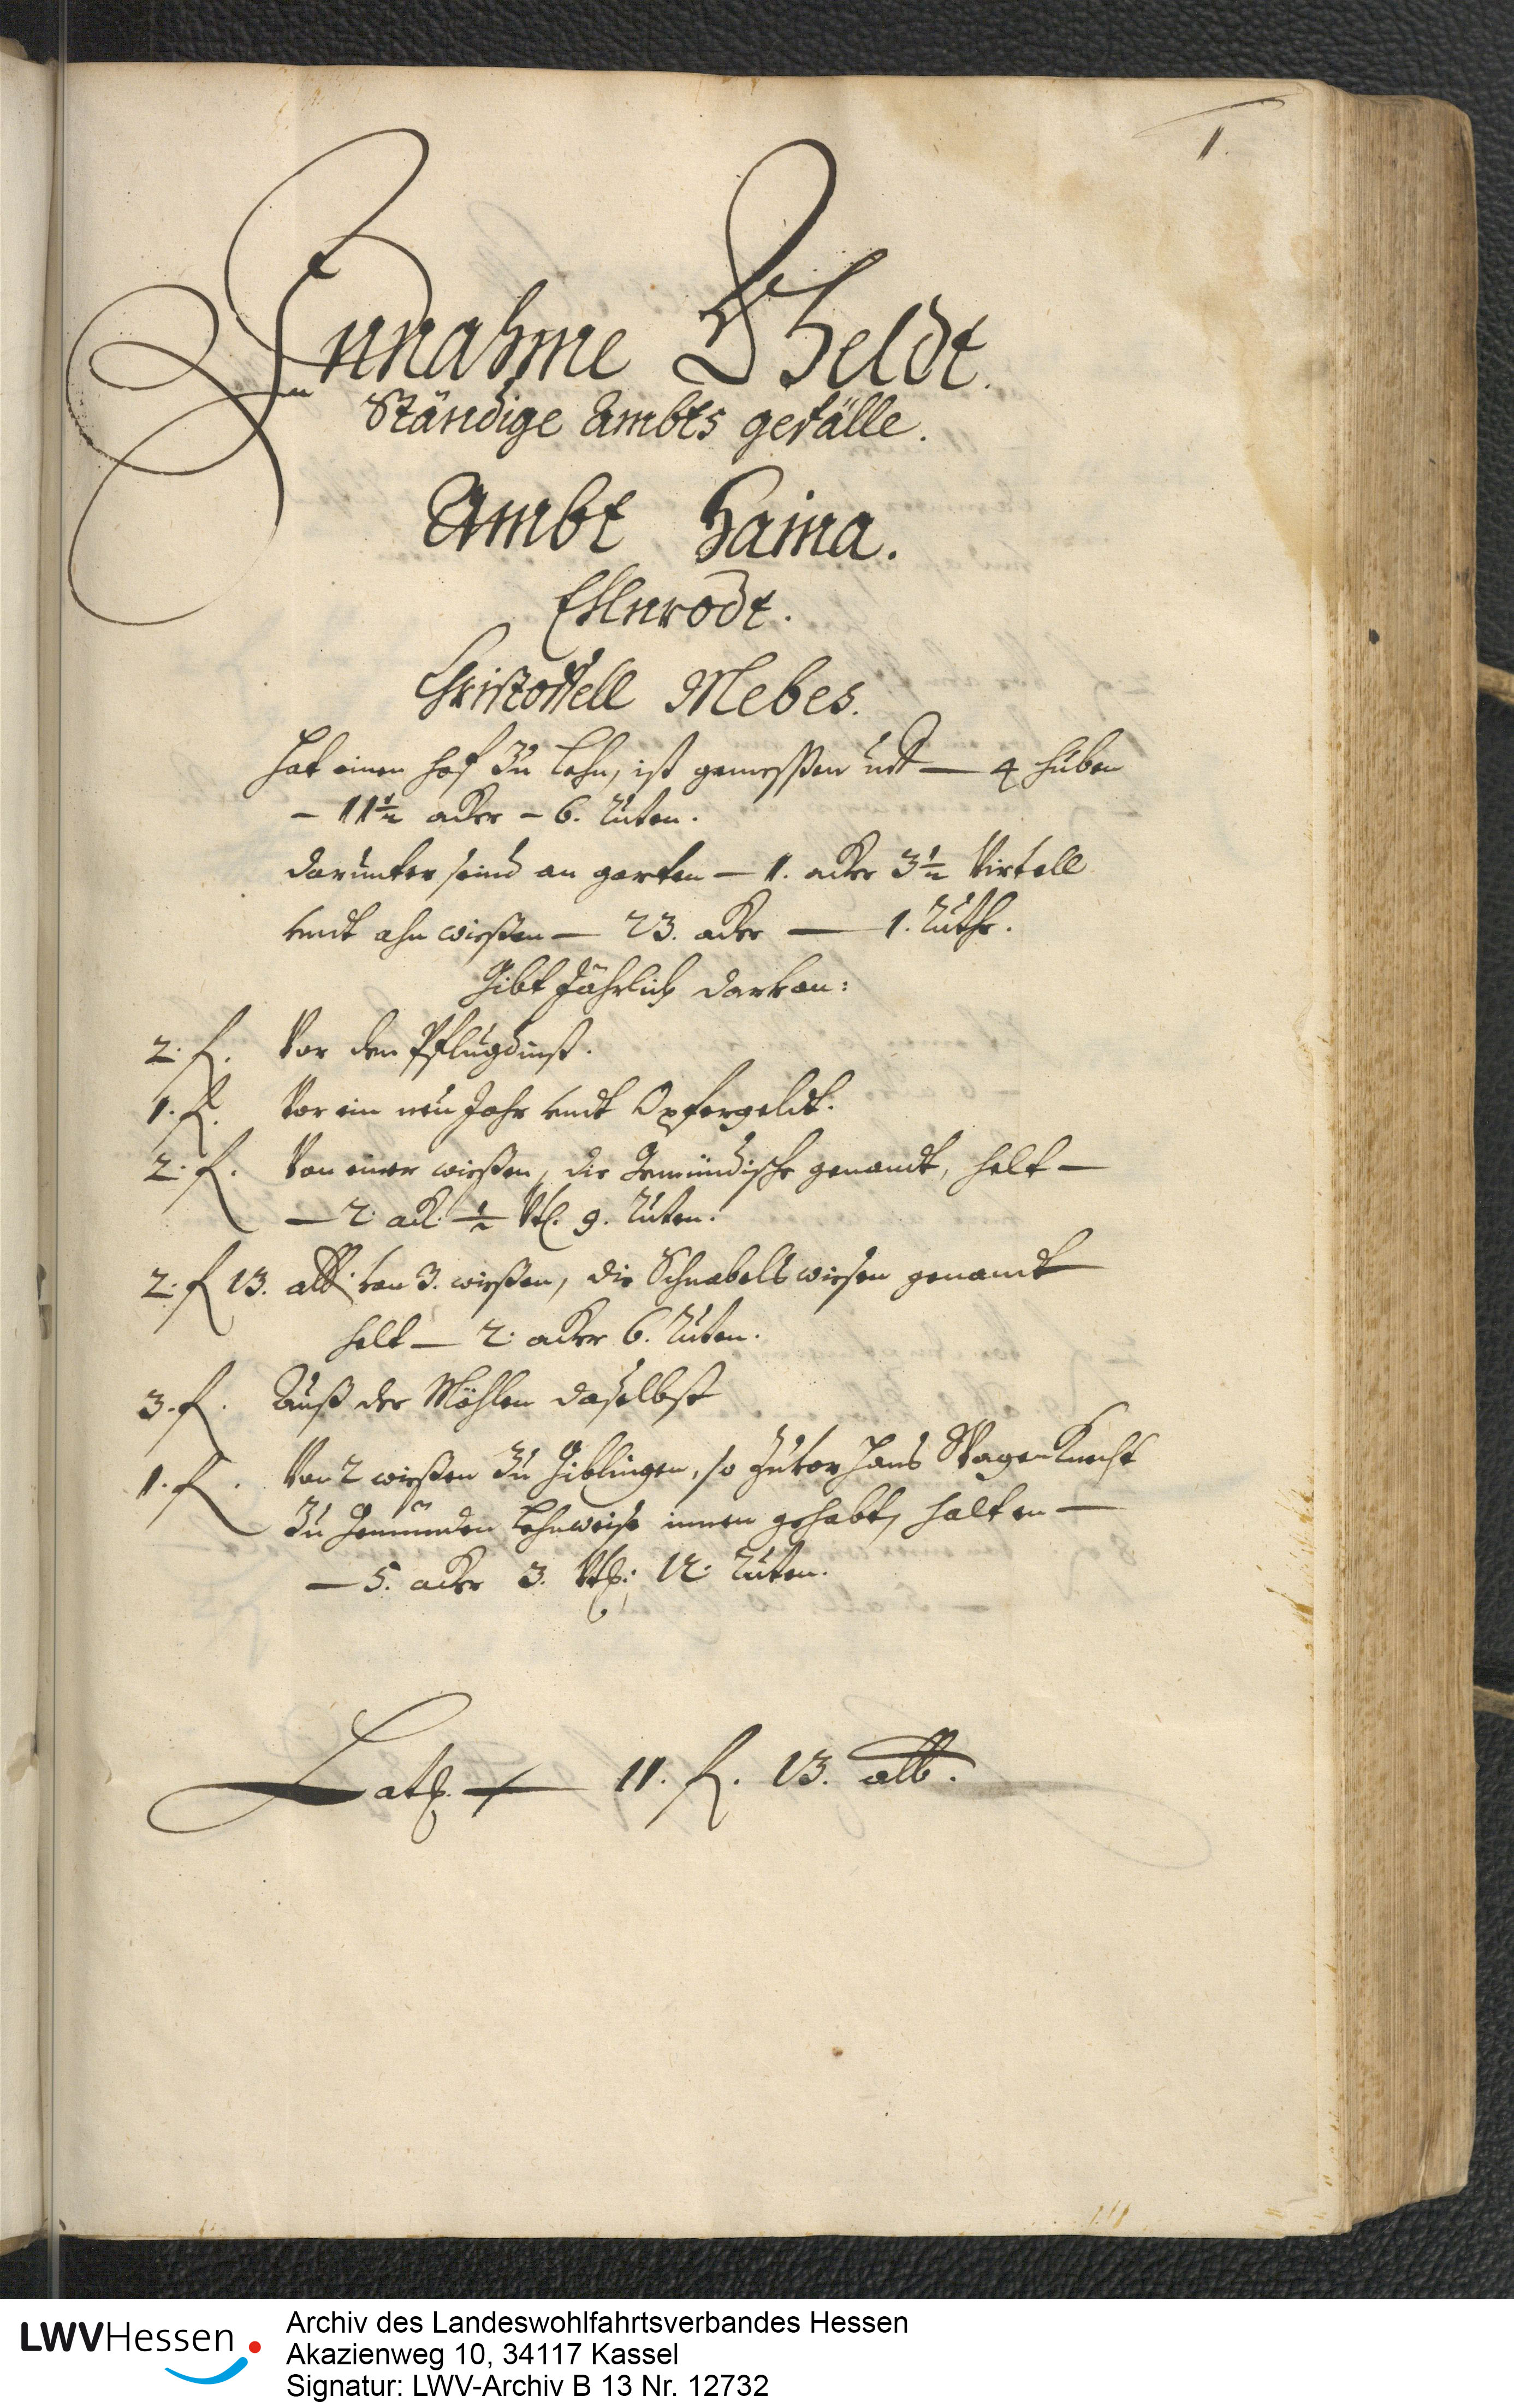 1.
Innahme Gheldt.
Ständige Ambts gefälle.
Ambt Haina.
Ellnrodt.
Christoffell Mebes.
Hat einen hof zu Lehn, ist gemeßen uf — 4 huben
— 11½ acker — 6. Ruten.
darunter seind an garten — 1. acker 3½ Virtell
undt ahn wießen — 23. acker — 1. Ruthe.
Gibt Jährlich darvon:
2. fl. Vor den Pflugdinst.
1. fl. Vor ein neu Jahr undt Opfergeldt.
2. fl. Von einer wießen, die Gemündische genandt, helt —
— 2. ack. ½ Vtl. 9. Ruten.
2. fl 13. alb. von 3. wießen, die Schnabelswiesen genandt
helt — 2. acker 6. Ruten.
3. fl. Auß der Möhlen daselbst
1. fl. Von 2 wießen zu Giblingen, so zuvor Hans Wagenknecht
zu Gemünden Lehnweise innen gehabt, halten —
— 5. acker 3. Vtl. 12. Ruten.
Lats. 11. fl. 13. alb.
LWVHessen
Archiv des Landeswohlfahrtsverbandes Hessen
Akazienweg 10, 34117 Kassel
Signatur: LWV-Archiv B 13 Nr. 12732